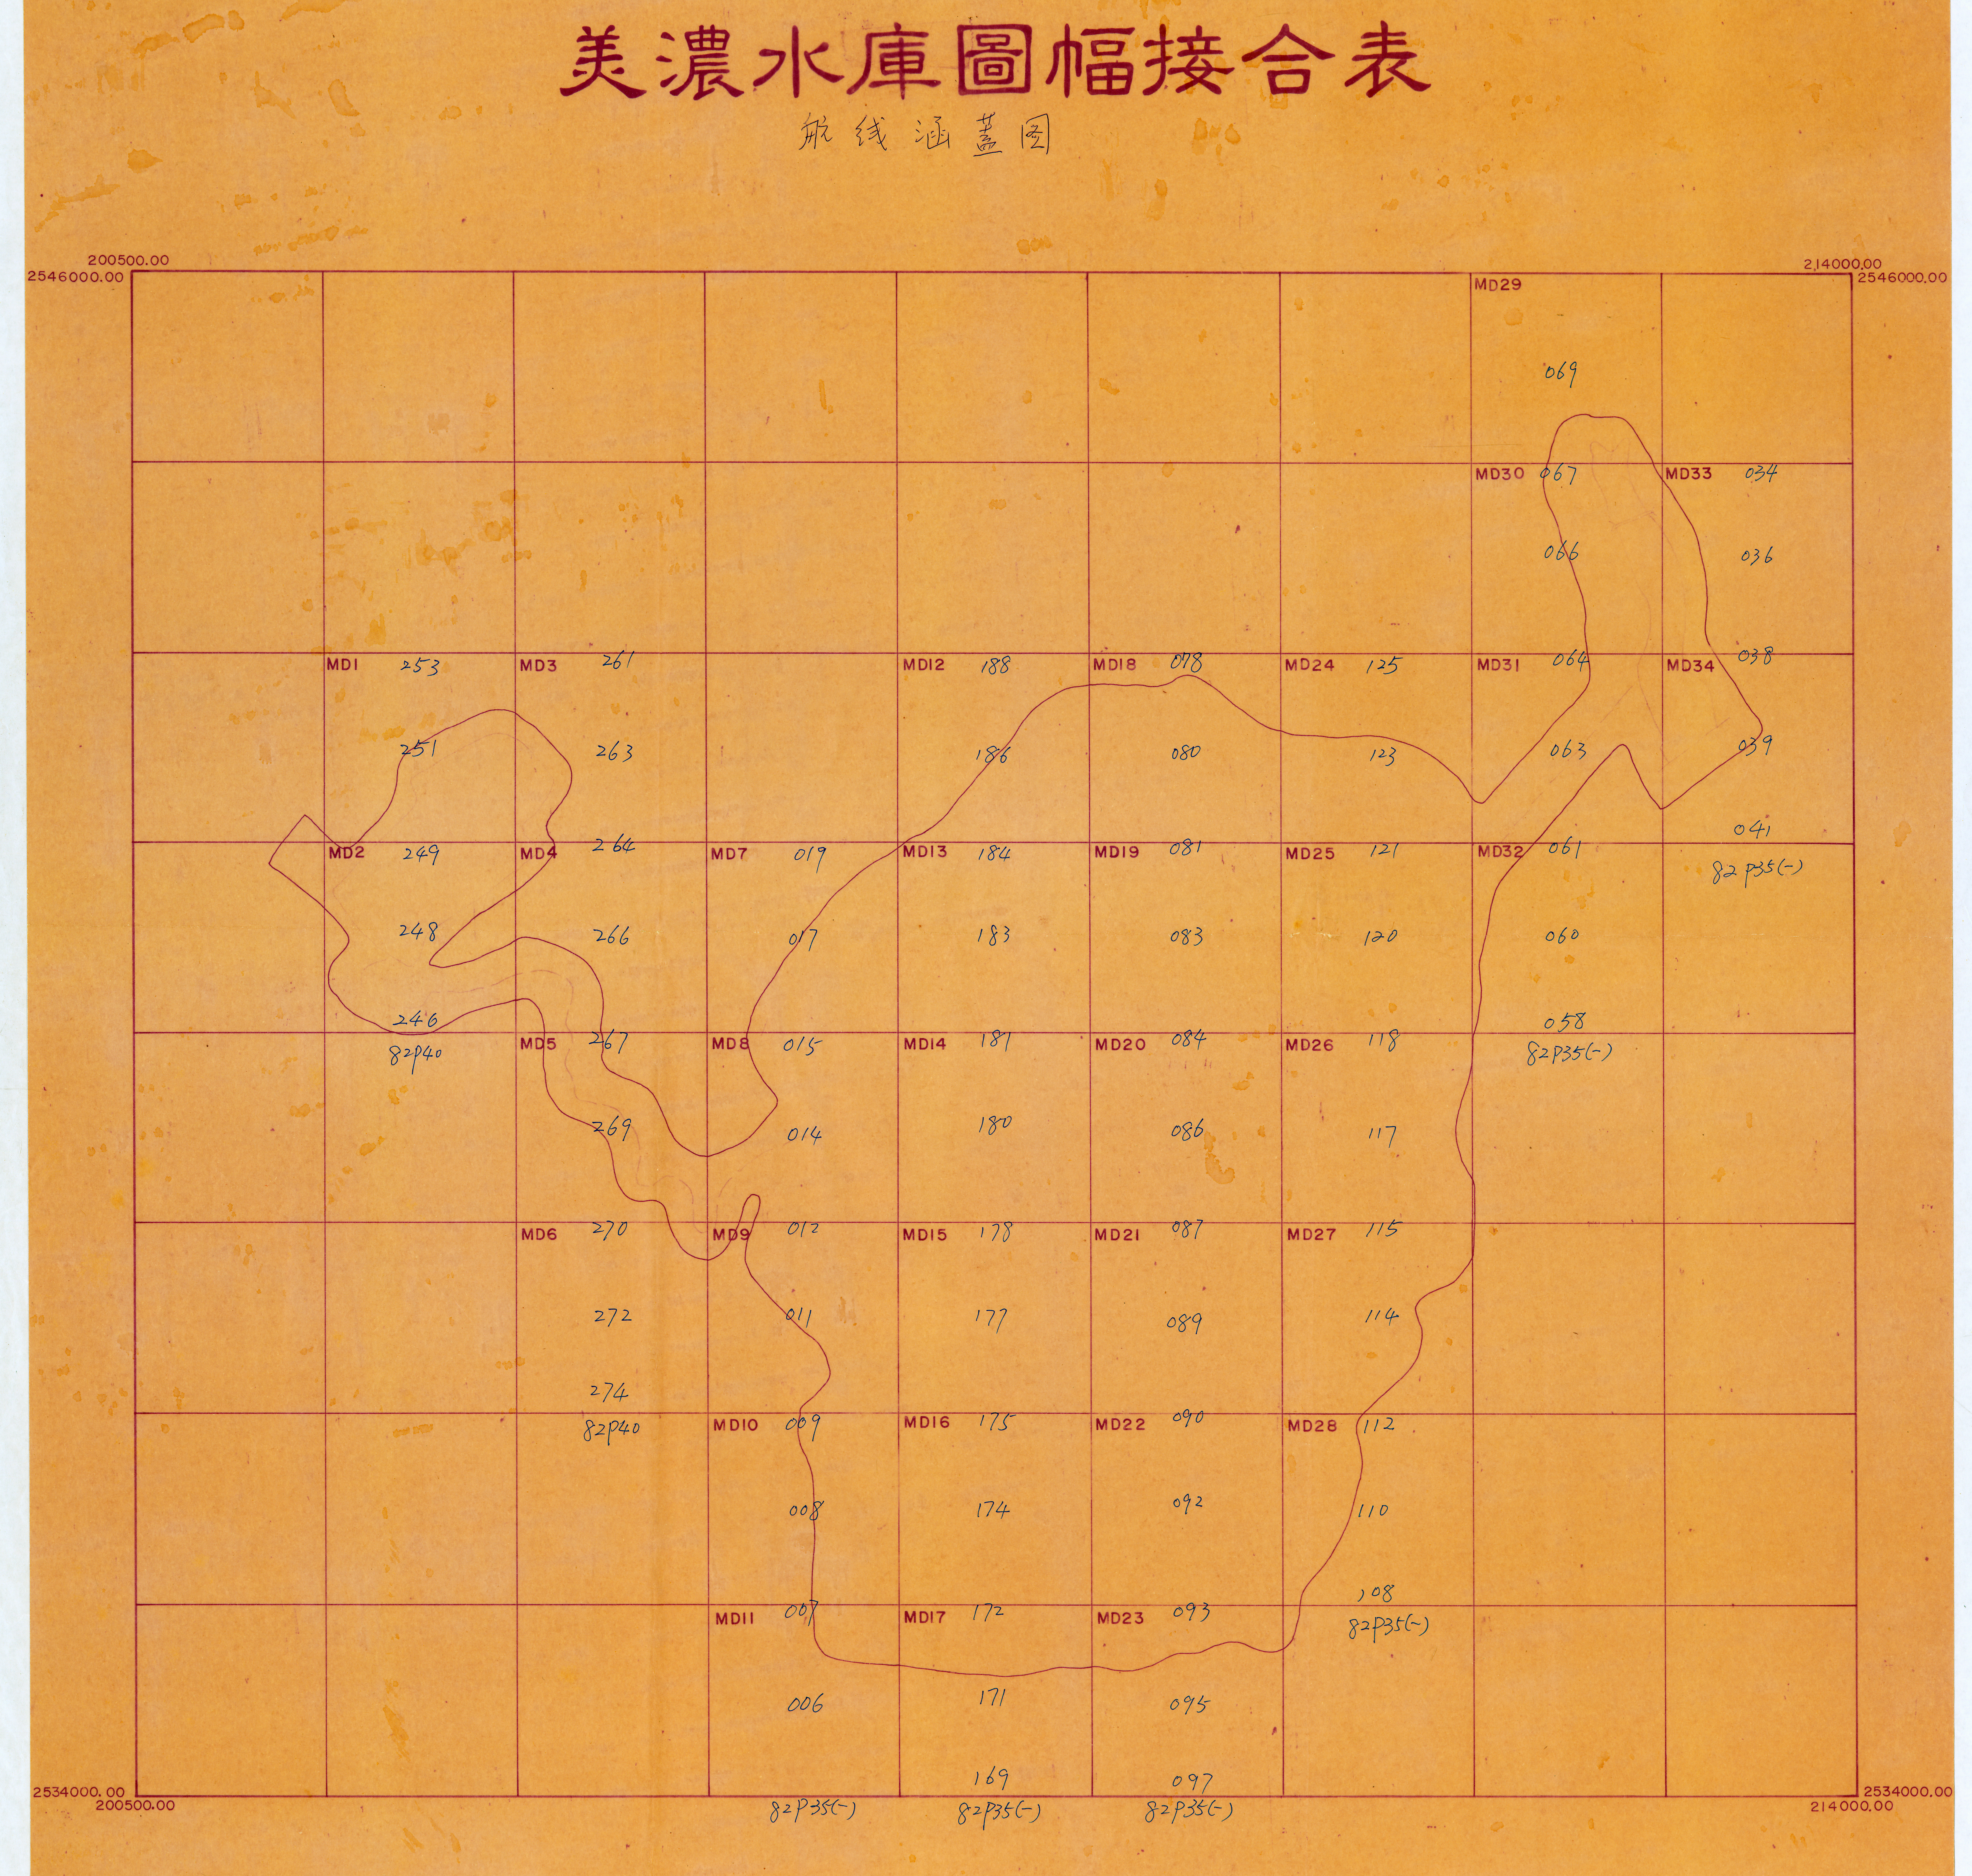 美濃水庫圖幅接合表
航线涵蓋图
200500.00 214000.00
2546000.00 2546000.00
MD29
069
MD30 067 MD33 034
066 036
MD1 253 MD3 261 MD12 188 MD18 078 MD24 125 MD31 064 MD34 038
251 263 186 080 123 063 039
041
MD2 249 MD4 264 MD7 019 MD13 184 MD19 081 MD25 121 MD32 061 82P35(-)
248 266 017 183 083 120 060
246 058
MD5 267 MD8 015 MD14 181 MD20 084 MD26 118
82P40 82P35(-)
269 014 180 086 117
MD6 270 MD9 012 MD15 178 MD21 087 MD27 115
272 011 177 089 114
274
82P40 MD10 009 MD16 175 MD22 090 MD28 112
008 174 092 110
108
MD11 007 MD17 172 MD23 093 82P35(-)
006 171 095
169 097
2534000.00 2534000.00
200500.00 82P35(-) 82P35(-) 82P35(-) 214000.00